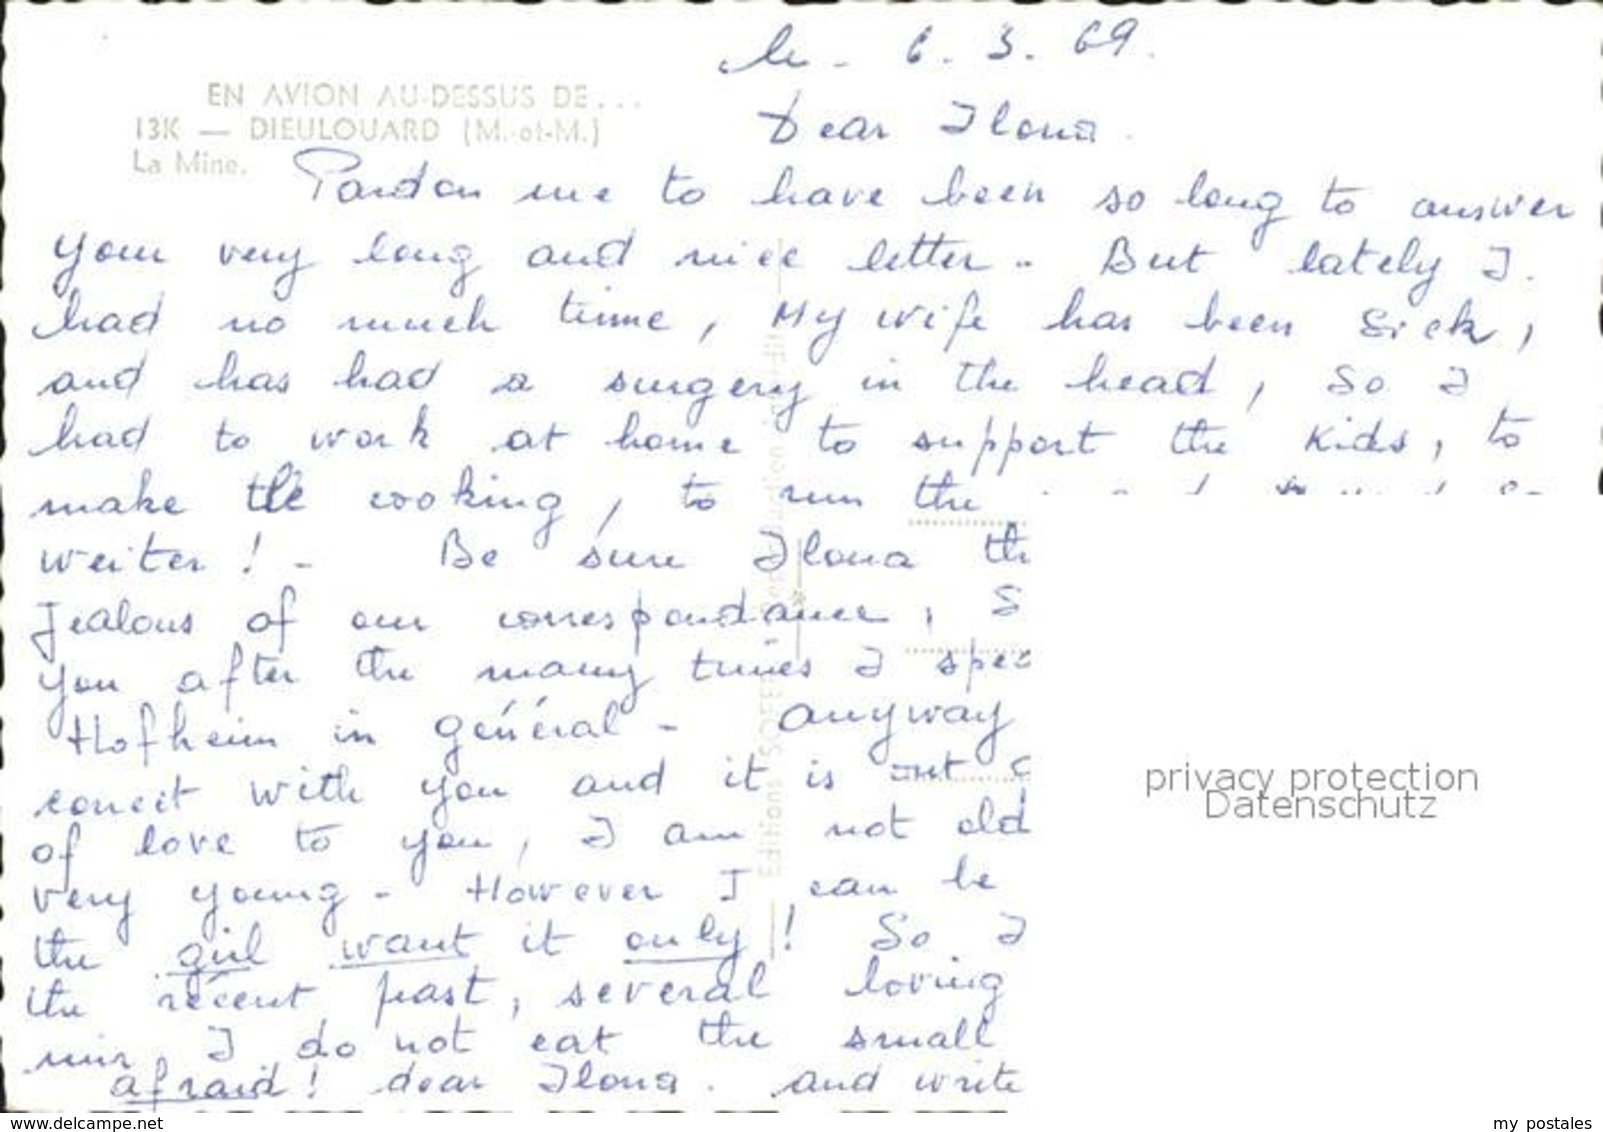 le - 6. 3. 69.
EN AVION AU-DESSUS DE...
13K — DIEULOUARD (M.-et-M.)
La Mine.
Dear Ilona.
Pardon me to have been so long to answer
your very long and nice letter - But lately I.
had no much time, My wife has been sick,
and has had a surgery in the head, So I
had to work at home to support the kids, to
make the cooking, to run the
weiter! - Be sure Ilona th
Jealous of our correspondance, S
you after the many times I spec
Hofheim in général - anyway
correct with you and it is out
of love to you, I am not old
very young - However I can be
the girl want it only! So I
the recent past, several loving
mir, I do not eat the small
afraid! dear Ilona. and write
Editions SOFER
privacy protection
Datenschutz
www.delcampe.net
my postales